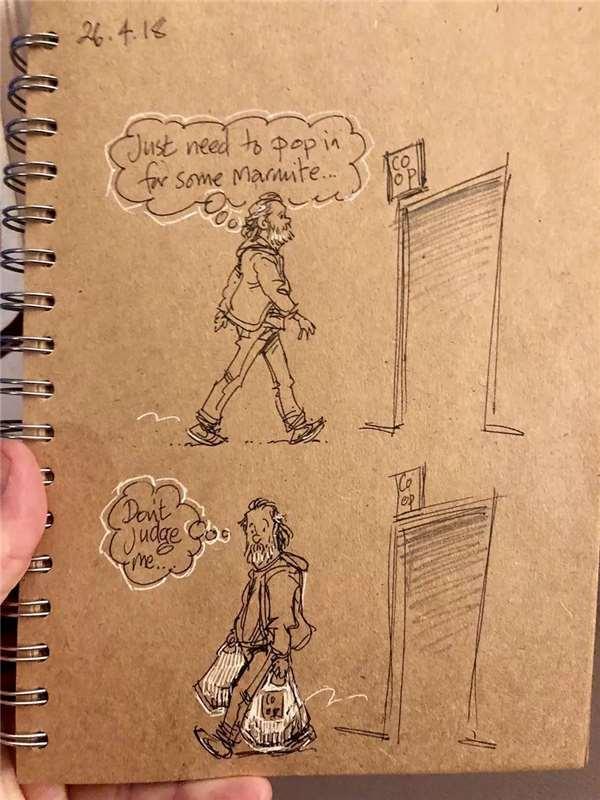 26.4.18
Just need to pop in
for some Marmite...
CO
OP
Don't
judge
me...
Co
op
CO
OP